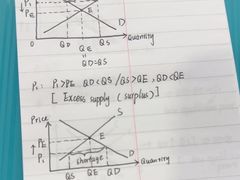 P₁
PE
E
D
0
QD QE QS
Quantity
QD=QS
P₁: P₁>PE QD<QS / QS>QE, QD<QE
[ Excess supply (surplus) ]
Price
S
PE
E
P₁
shortage
D
QS QE QD
Quantity